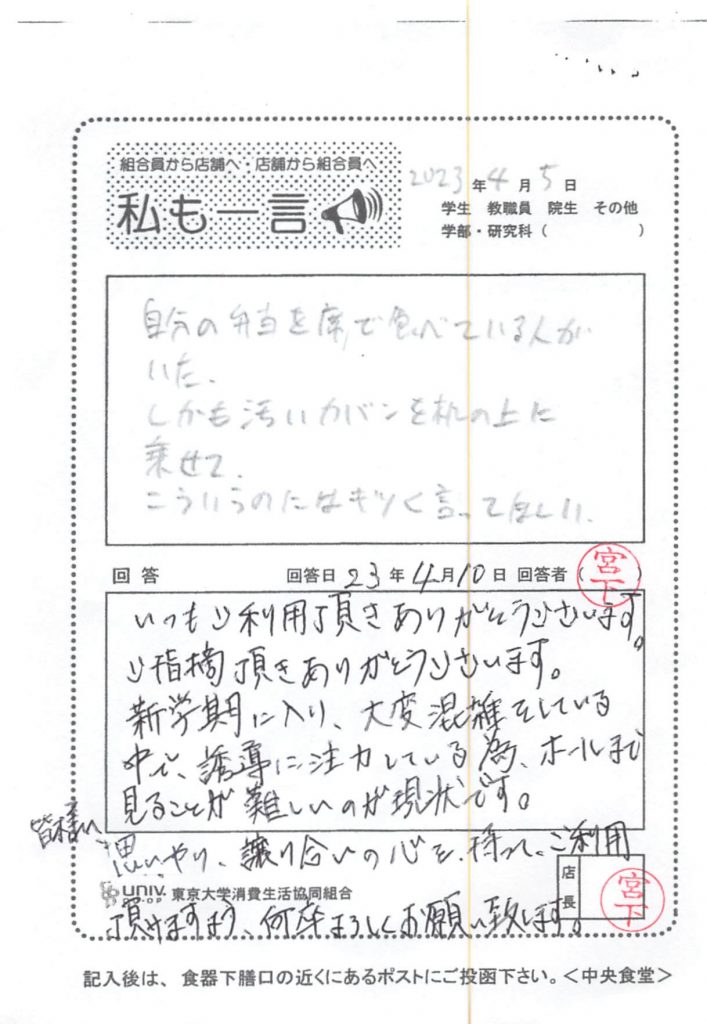 組合員から店舗へ・店舗から組合員へ
私も一言
2023年4月5日
学生 教職員 院生 その他
学部・研究科（ ）
自分の弁当を席で食べている人が
いた.
しかも汚いカバンを机の上に
乗せて.
こういうのにはキツく言ってほしい.
回答 回答日 23年4月10日 回答者（宮下）
いつもご利用頂きありがとうございます。
ご指摘頂きありがとうございます。
新学期に入り、大変混雑をしている
中で、誘導に注力している為、ホールまで
見ることが難しいのが現状です。
皆様に
思いやり、譲り合いの心を、持って、ご利用
店長 宮下
univ. CO-OP 東京大学消費生活協同組合
頂けますよう、何卒よろしくお願い致します。
記入後は、食器下膳口の近くにあるポストにご投函下さい。＜中央食堂＞